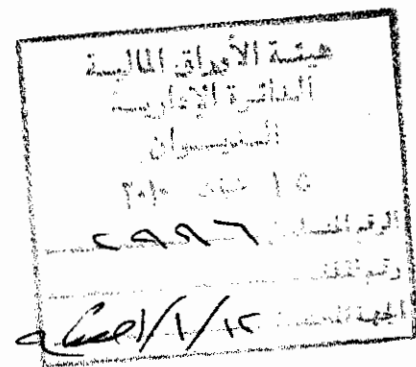 هيئة الأوراق المالية
الدائرة الإدارية
الديوان
٢٠١٠
الرقم المتسلسل ٢٩٩٦
رقم الملف
الجهة المختصة